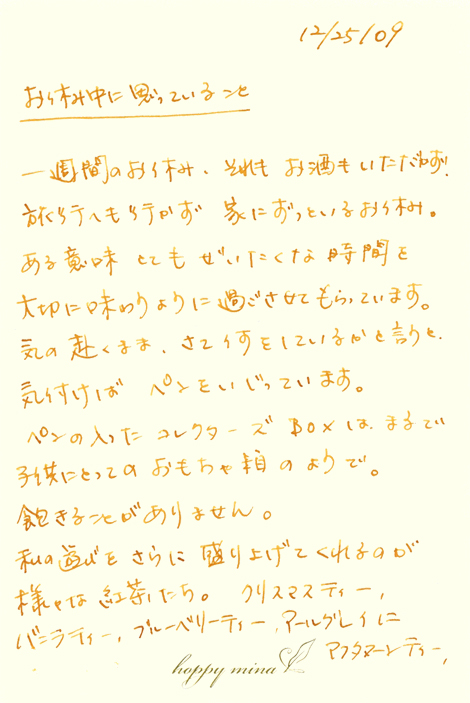 12/25/09
お休み中に思っていること
一週間のお休み、それも お酒もいただかず!
旅行へも行かず 家にずっといるお休み。
ある意味 とても ぜいたくな 時間を
大切に味わうように 過ごさせてもらっています。
気の 赴くまま、さて何をしているかと言うと、
気付けば ペンをいじっています。
ペンの入った コレクターズ BOXは、まるで
子供にとっての おもちゃ箱のようで。
飽きることがありません。
私の遊びを さらに 盛り上げてくれるのが
様々な 紅茶たち。 クリスマスティー,
バニラティー, ブルーベリーティー, アールグレイに
アフタヌーンティー,
happy mina